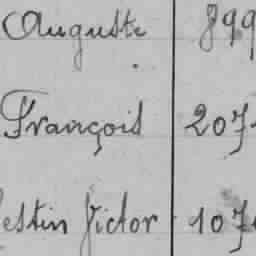 Auguste 899
François 207
estin Victor 107